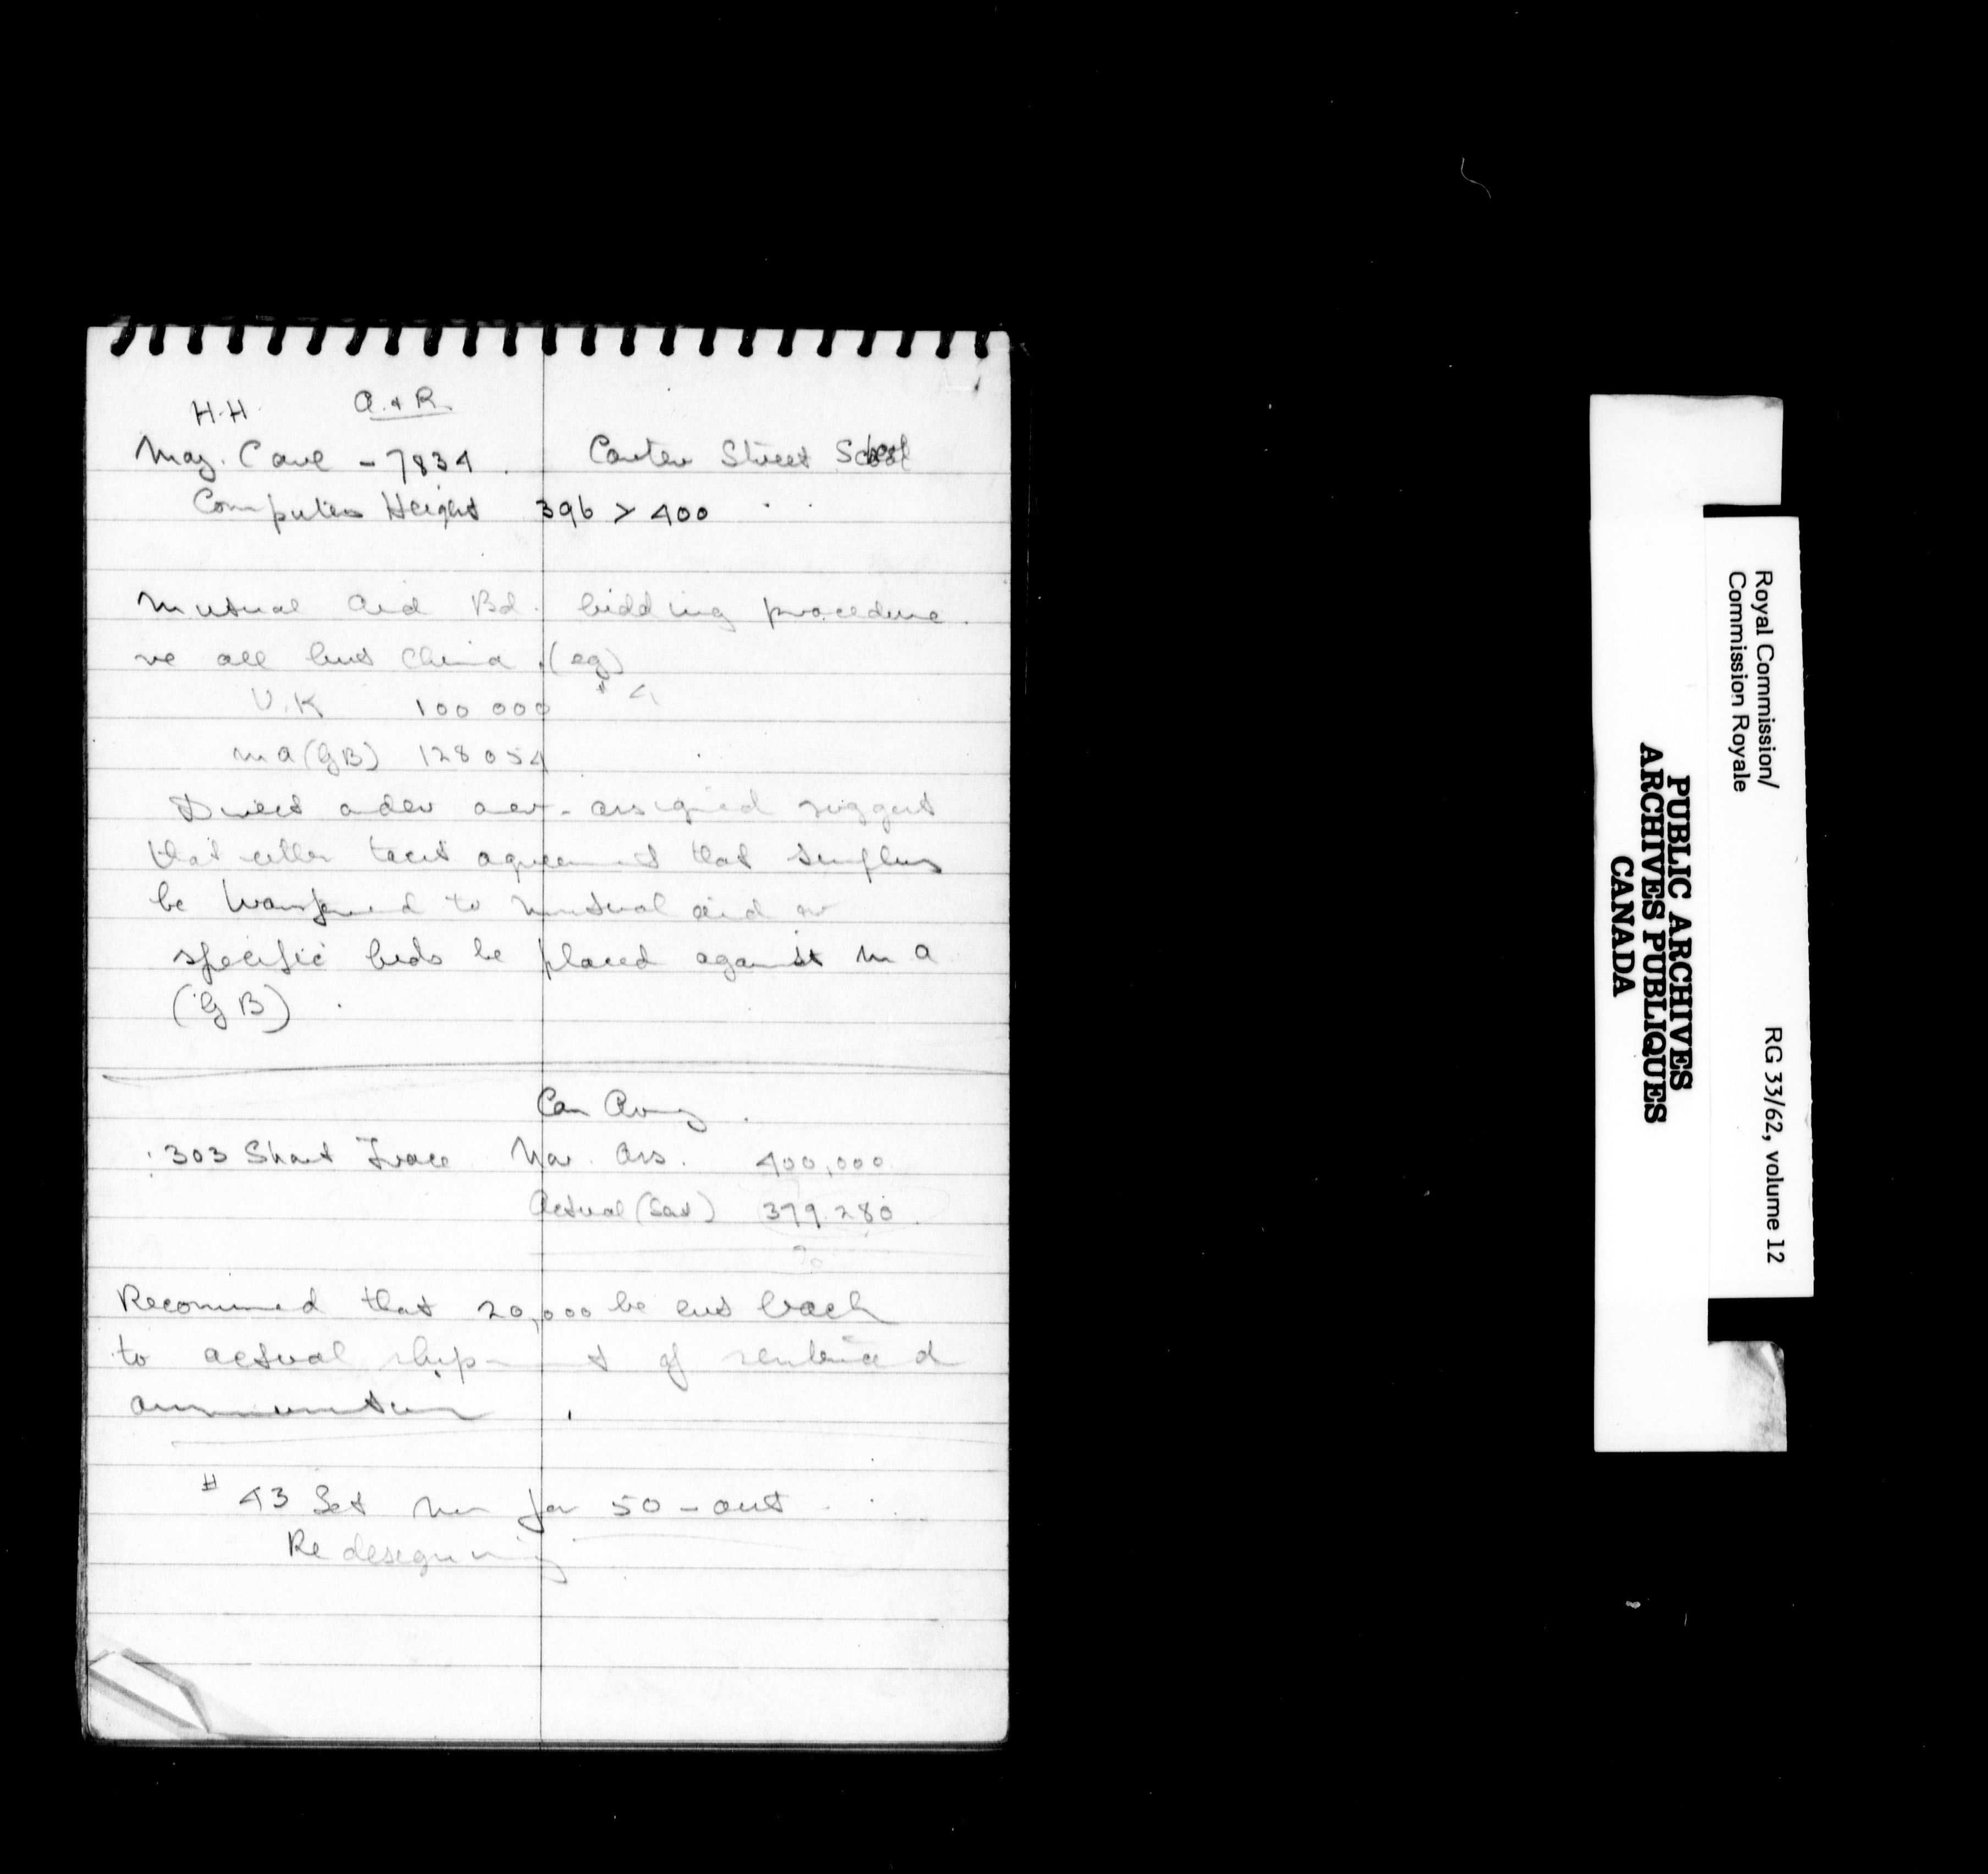 H.H. A. & R.
Maj. Cave - 7834. Carter Street School
Computer Height 396 > 400
Mutual Aid Bd. bidding procedure.
re all but China. (eg)
U.K 100 000
M A (GB) 128 054
Direct order over-assigned suggest
that either tacit agreement that surplus
be transferred to mutual aid or
specific bids be placed against M A
(GB).
Can Army.
.303 Short Trace Nov. Ass. 400,000
Actual (Sat) 379.280
20
Recommend that 20,000 be cut back
to actual shipment of
ammunition.
# 43 Set for 50 - out
Redesigning
Royal Commission/
Commission Royale
RG 33/62, volume 12
PUBLIC ARCHIVES
ARCHIVES PUBLIQUES
CANADA